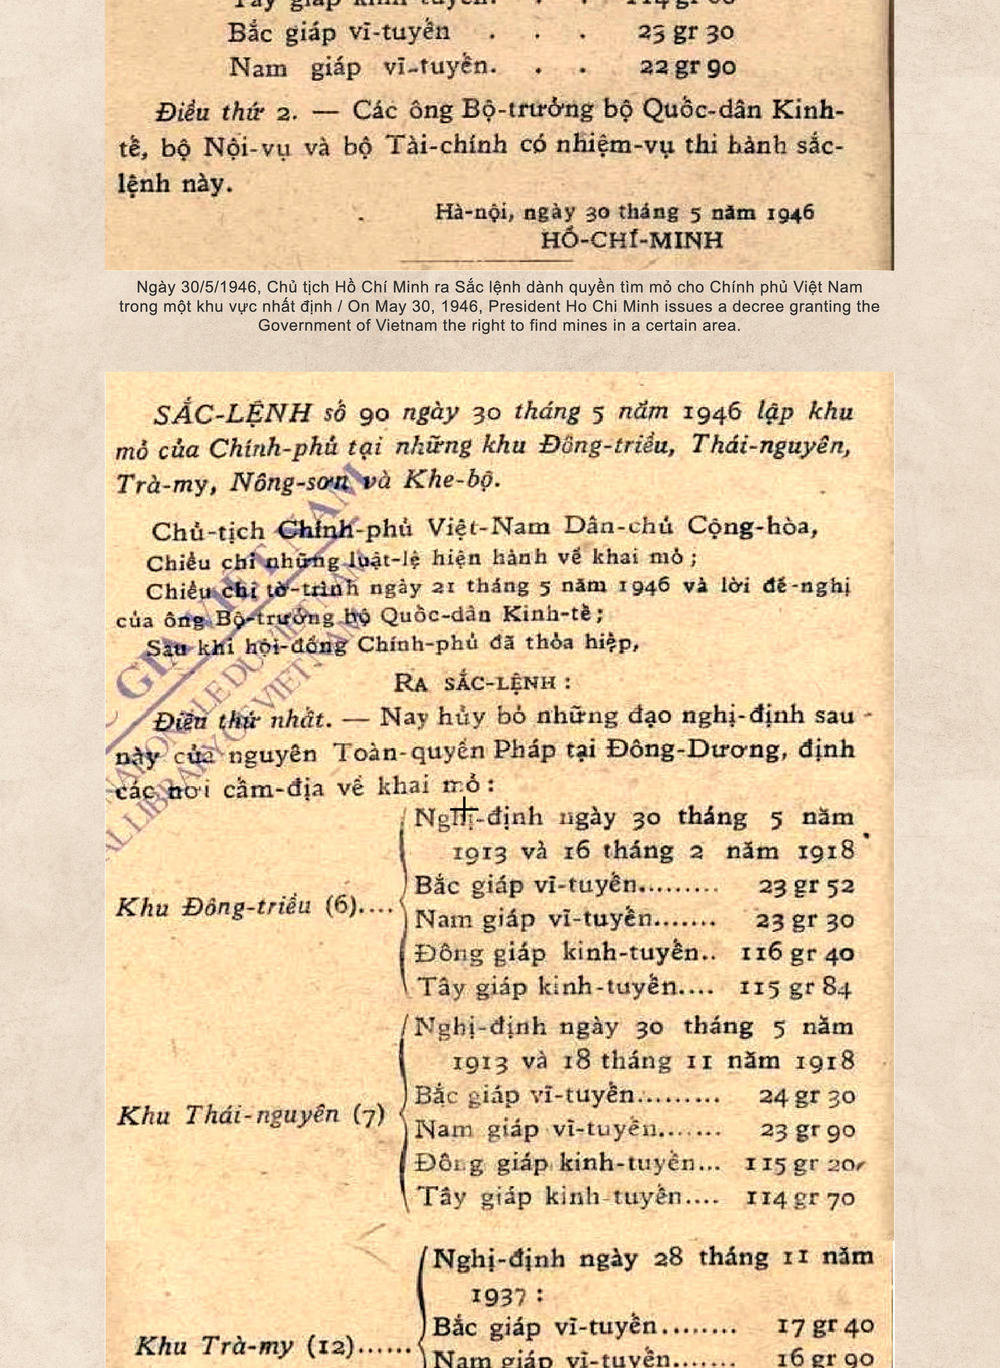 Tây giáp kinh-tuyến. . . 114 gr 60
Bắc giáp vĩ-tuyến . . . 23 gr 30
Nam giáp vĩ-tuyến. . . 22 gr 90
Điều thứ 2. — Các ông Bộ-trưởng bộ Quốc-dân Kinh-
tế, bộ Nội-vụ và bộ Tài-chính có nhiệm-vụ thi hành sắc-
lệnh này.
Hà-nội, ngày 30 tháng 5 năm 1946
HỒ-CHÍ-MINH
Ngày 30/5/1946, Chủ tịch Hồ Chí Minh ra Sắc lệnh dành quyền tìm mỏ cho Chính phủ Việt Nam
trong một khu vực nhất định / On May 30, 1946, President Ho Chi Minh issues a decree granting the
Government of Vietnam the right to find mines in a certain area.
SẮC-LỆNH số 90 ngày 30 tháng 5 năm 1946 lập khu
mỏ của Chính-phủ tại những khu Đông-triều, Thái-nguyên,
Trà-my, Nông-sơn và Khe-bộ.
Chủ-tịch Chính-phủ Việt-Nam Dân-chủ Cộng-hòa,
Chiểu chỉ những luật-lệ hiện hành về khai mỏ ;
Chiểu chỉ tờ-trình ngày 21 tháng 5 năm 1946 và lời đề-nghị
của ông Bộ-trưởng bộ Quốc-dân Kinh-tế ;
Sau khi hội-đồng Chính-phủ đã thỏa hiệp,
RA SẮC-LỆNH :
Điều thứ nhất. — Nay hủy bỏ những đạo nghị-định sau
này của nguyên Toàn-quyền Pháp tại Đông-Dương, định
các nơi cấm-địa về khai mỏ :
Nghị-định ngày 30 tháng 5 năm
1913 và 16 tháng 2 năm 1918
Bắc giáp vĩ-tuyến......... 23 gr 52
Khu Đông-triều (6)....
Nam giáp vĩ-tuyến....... 23 gr 30
Đông giáp kinh-tuyến.. 116 gr 40
Tây giáp kinh-tuyến.... 115 gr 84
Nghị-định ngày 30 tháng 5 năm
1913 và 18 tháng 11 năm 1918
Bắc giáp vĩ-tuyến......... 24 gr 30
Khu Thái-nguyên (7)
Nam giáp vĩ-tuyến....... 23 gr 90
Đông giáp kinh-tuyến... 115 gr 20
Tây giáp kinh-tuyến.... 114 gr 70
Nghị-định ngày 28 tháng 11 năm
1937 :
Bắc giáp vĩ-tuyến........ 17 gr 40
Khu Trà-my (12)......
Nam giáp vĩ-tuyến....... 16 gr 90
GIA VIỆT NAM
NATIONALE DU VIETNAM
AL LIBRARY OF VIETNAM